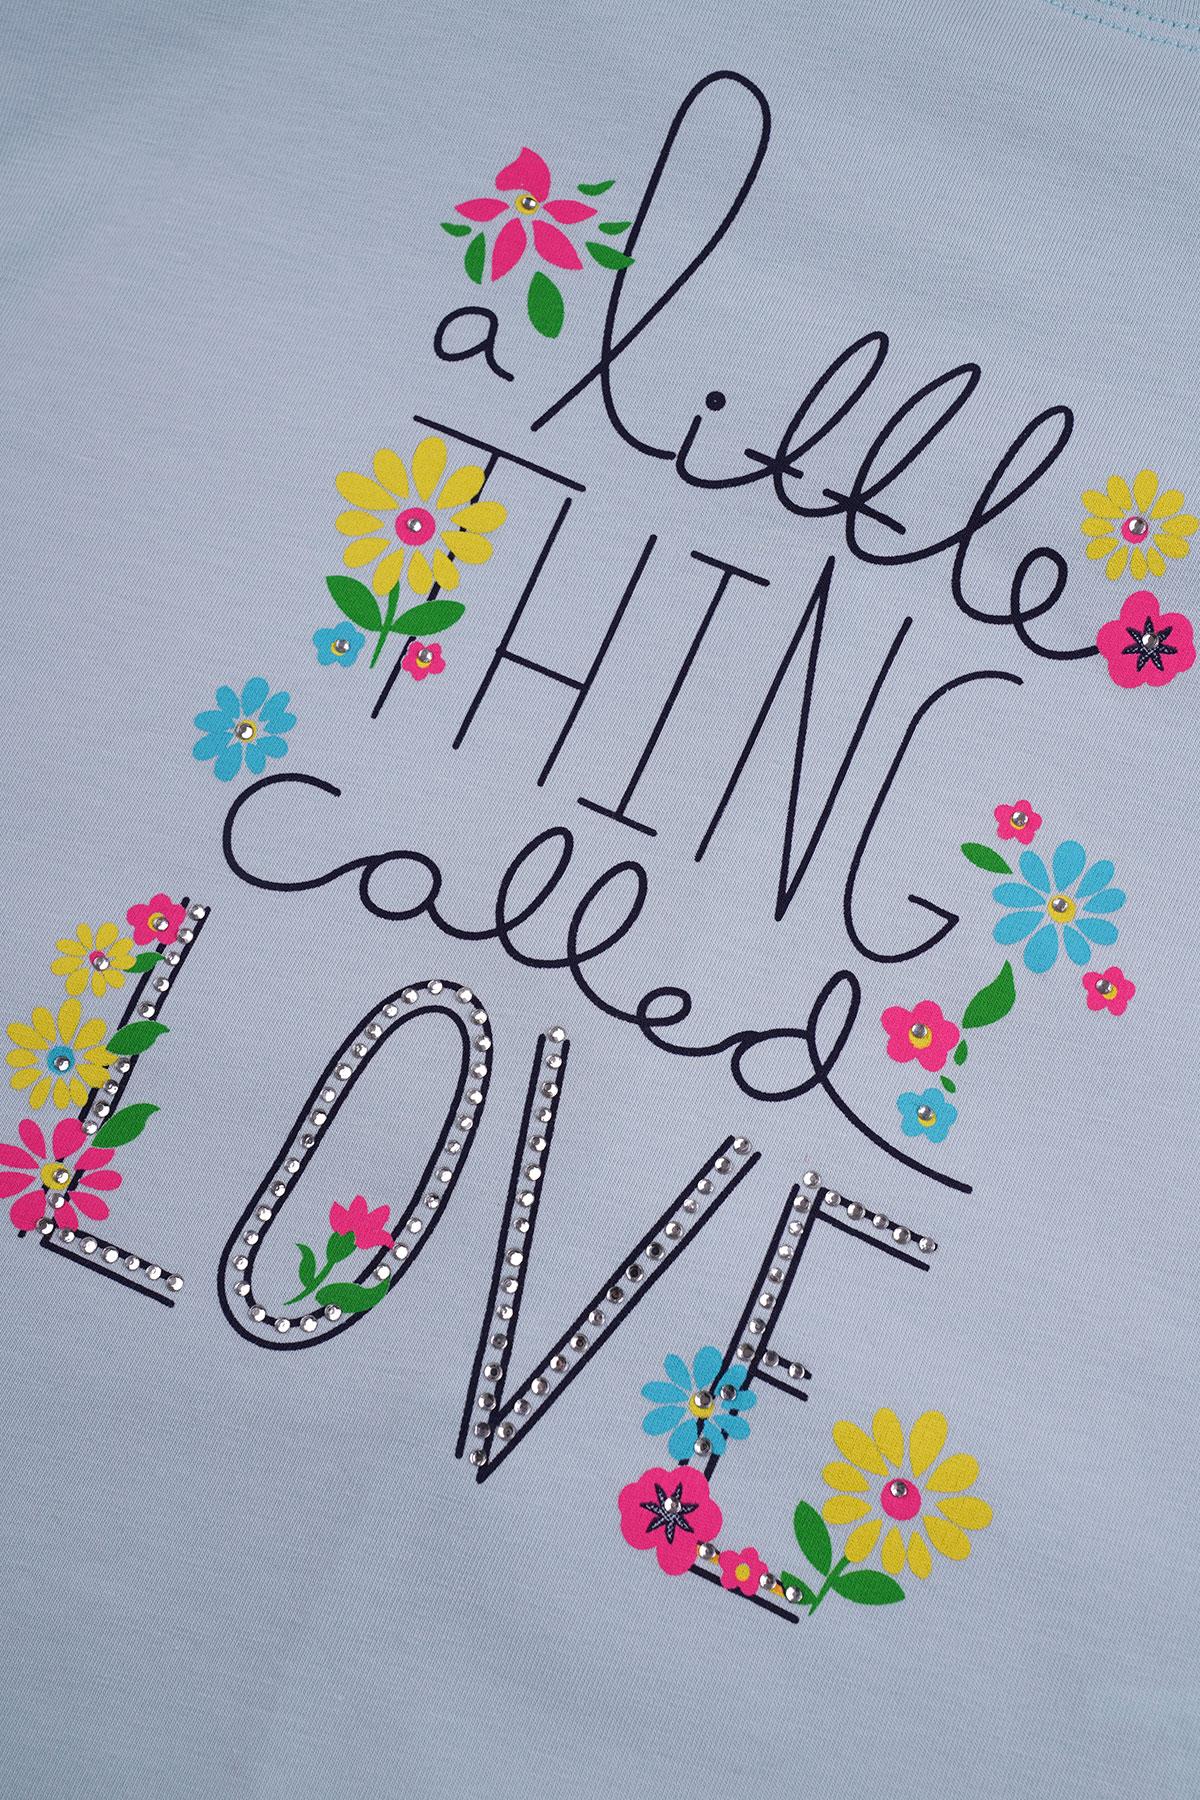 a little
THING
called
LOVE